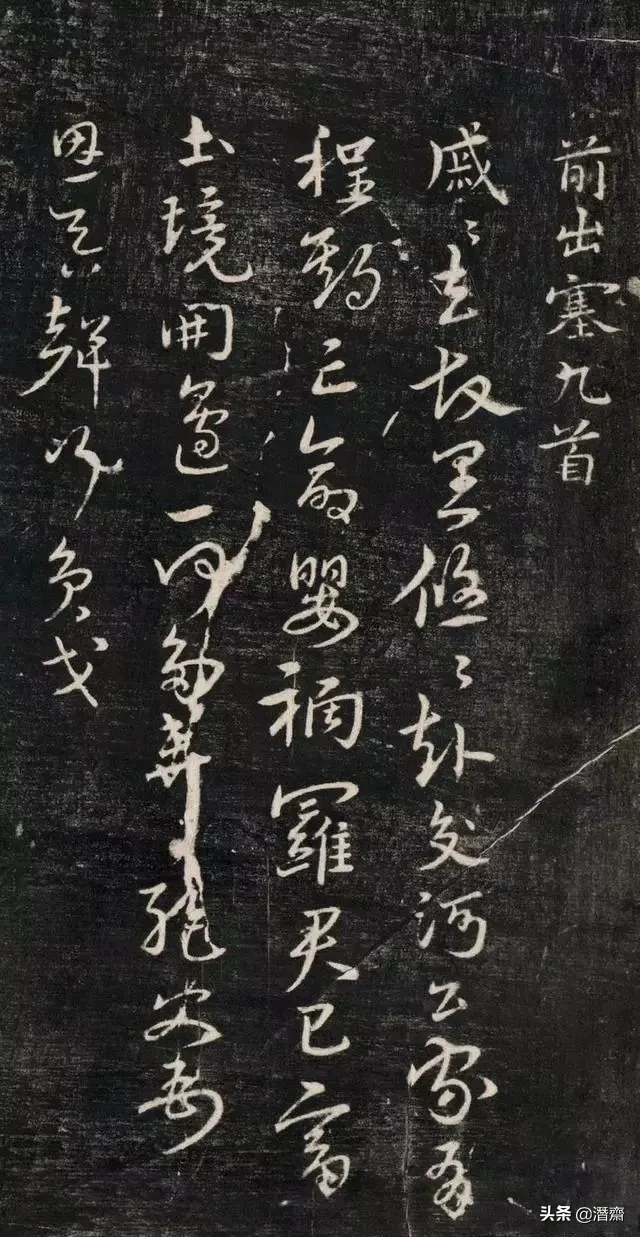 前出塞九首
戚〻去故里悠〻赴交河公家有
程期亡命嬰禍羅君已富
土境開邊一何多棄絕父母
恩吞聲行負戈
头条 @潛齋